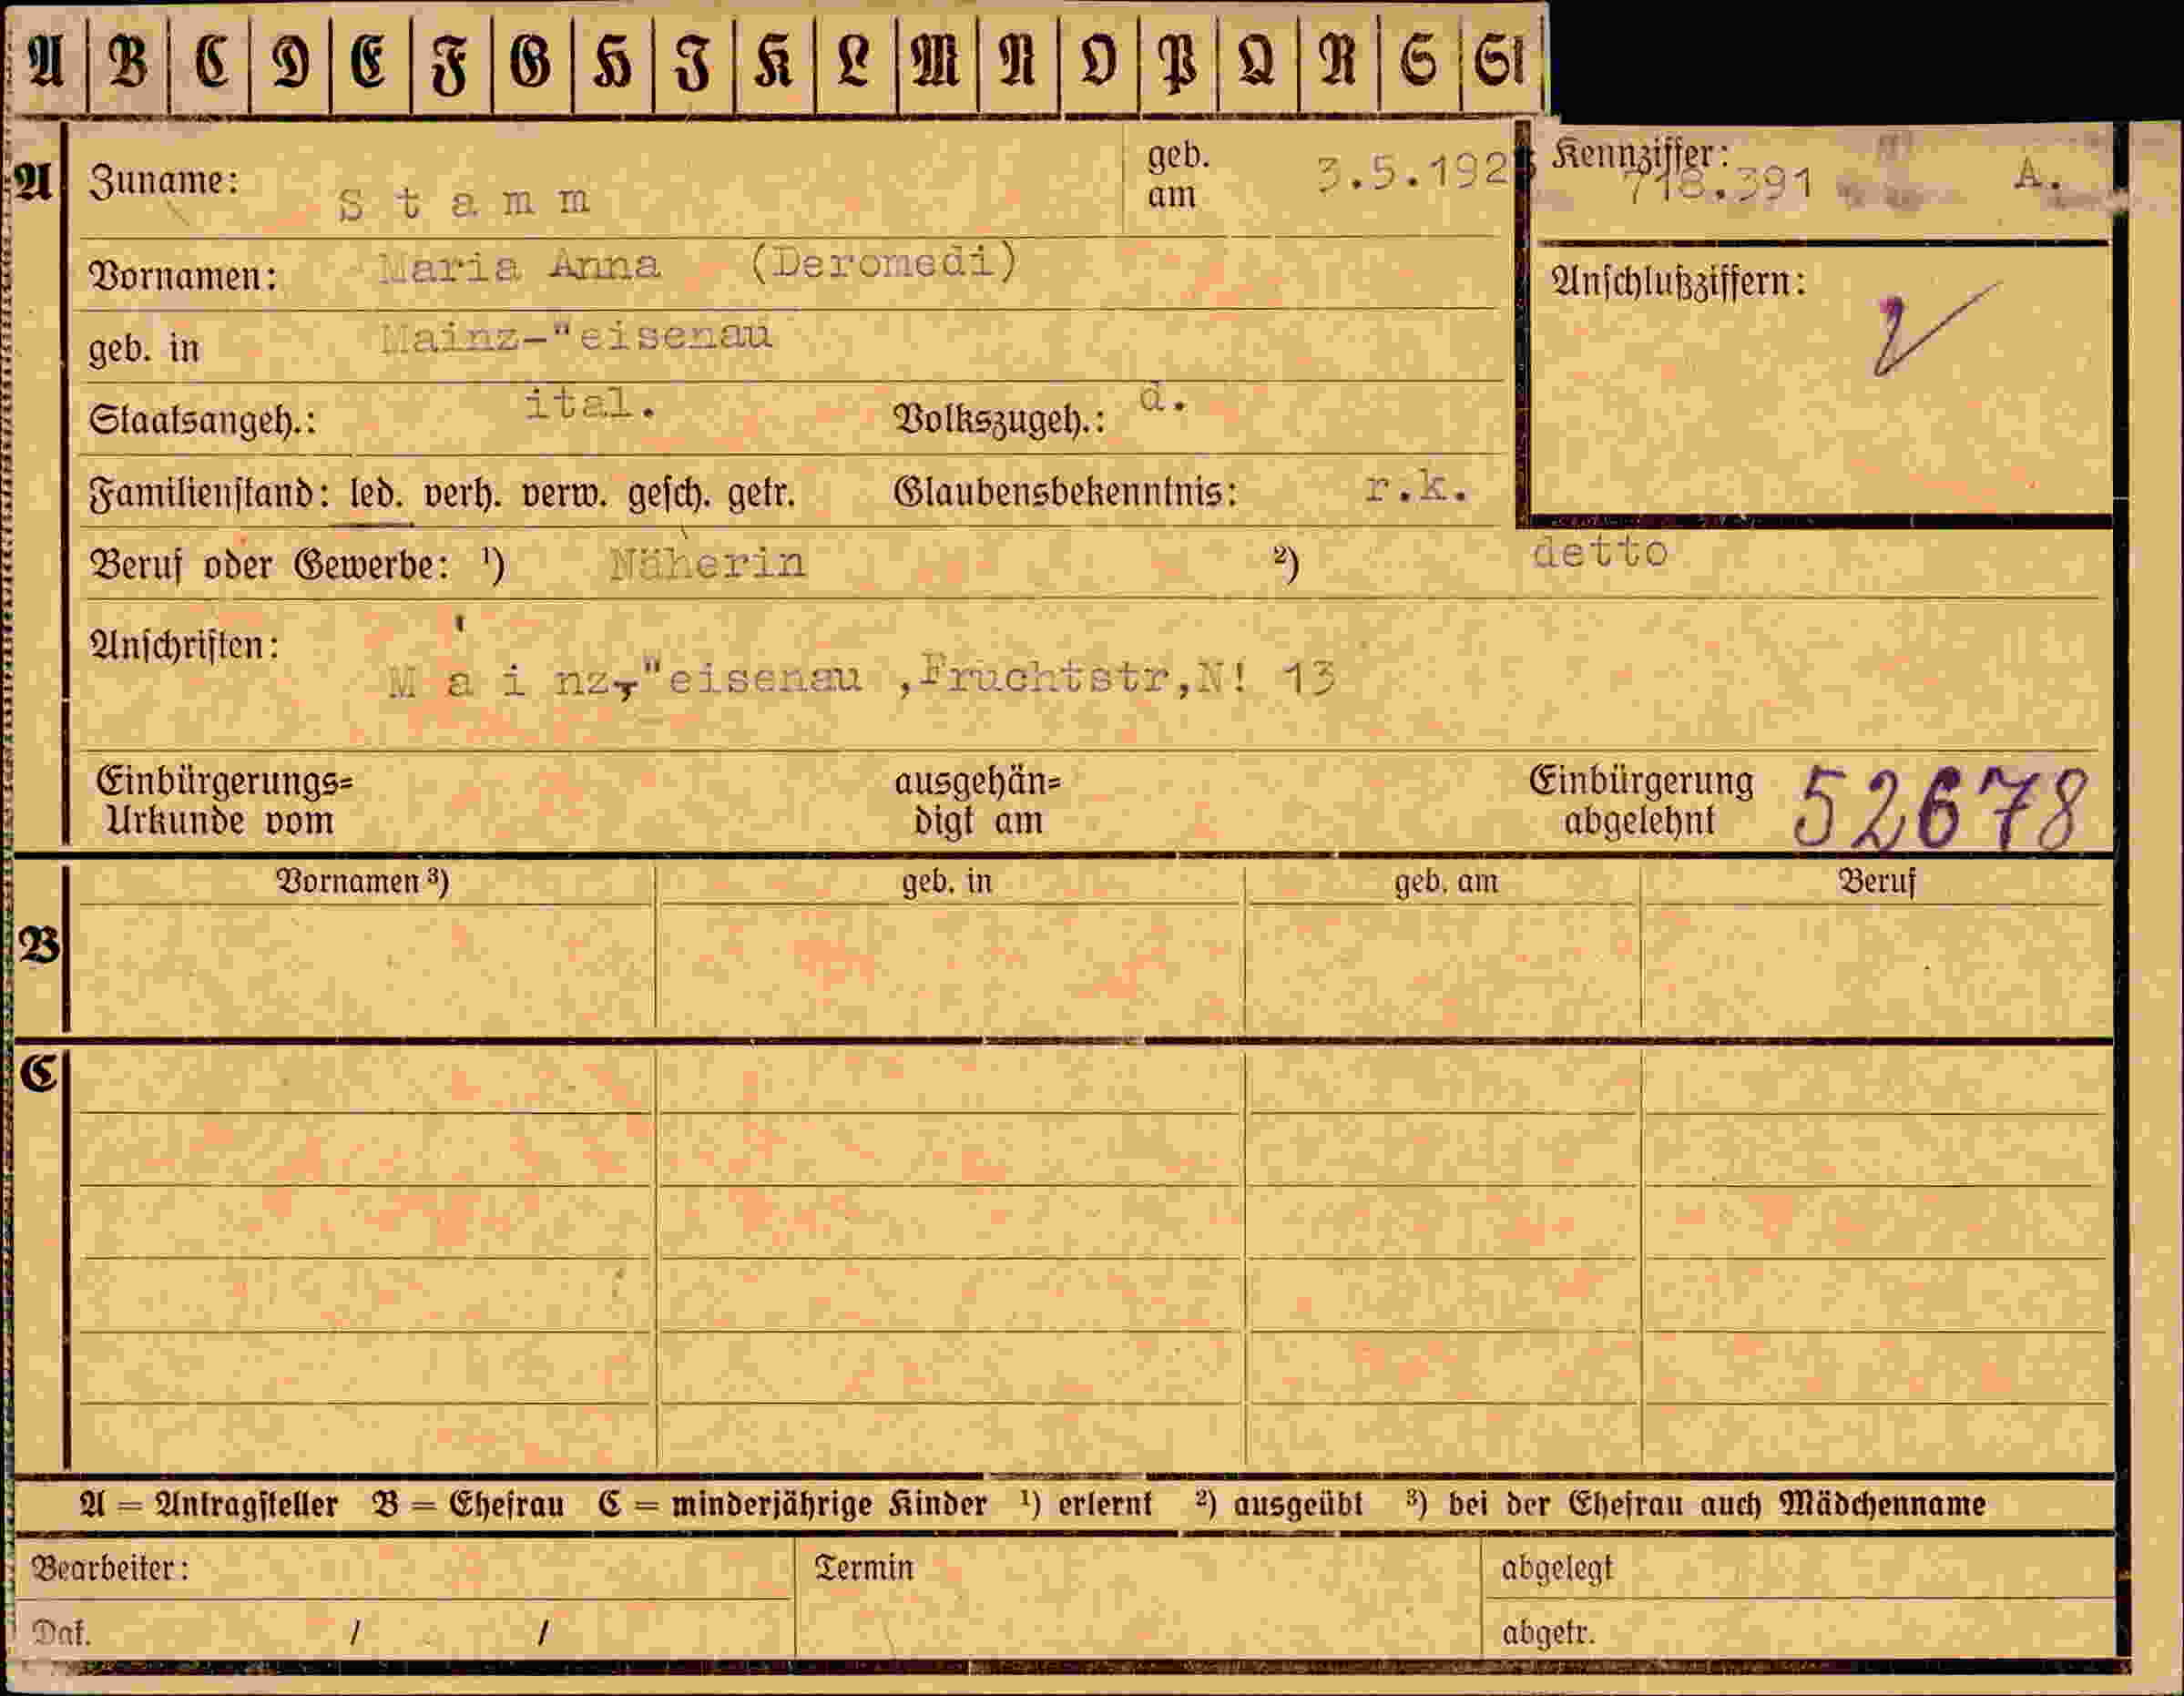 A B C D E F G H I K L M N O P Q R S St
A Zuname: Stamm geb. am 3.5.192 Kennziffer: 718.391 A.
Vornamen: Maria Anna (Deromedi) Anschlußziffern:
geb. in Mainz-"eisenau
Staatsangeh.: ital. Volkszugeh.: d.
Familienstand: led. verh. verw. gesch. getr. Glaubensbekenntnis: r.k.
Beruf oder Gewerbe: ¹) Näherin ²) detto
Anschriften:
Mainz-"eisenau ,Fruchtstr,N! 13
Einbürgerungs= ausgehän= Einbürgerung 52678
Urkunde vom digt am abgelehnt
Vornamen ³) geb. in geb. am Beruf
B
C
A = Antragsteller B = Ehefrau C = minderjährige Kinder ¹) erlernt ²) ausgeübt ³) bei der Ehefrau auch Mädchenname
Bearbeiter: Termin abgelegt
Dat. / / abgetr.